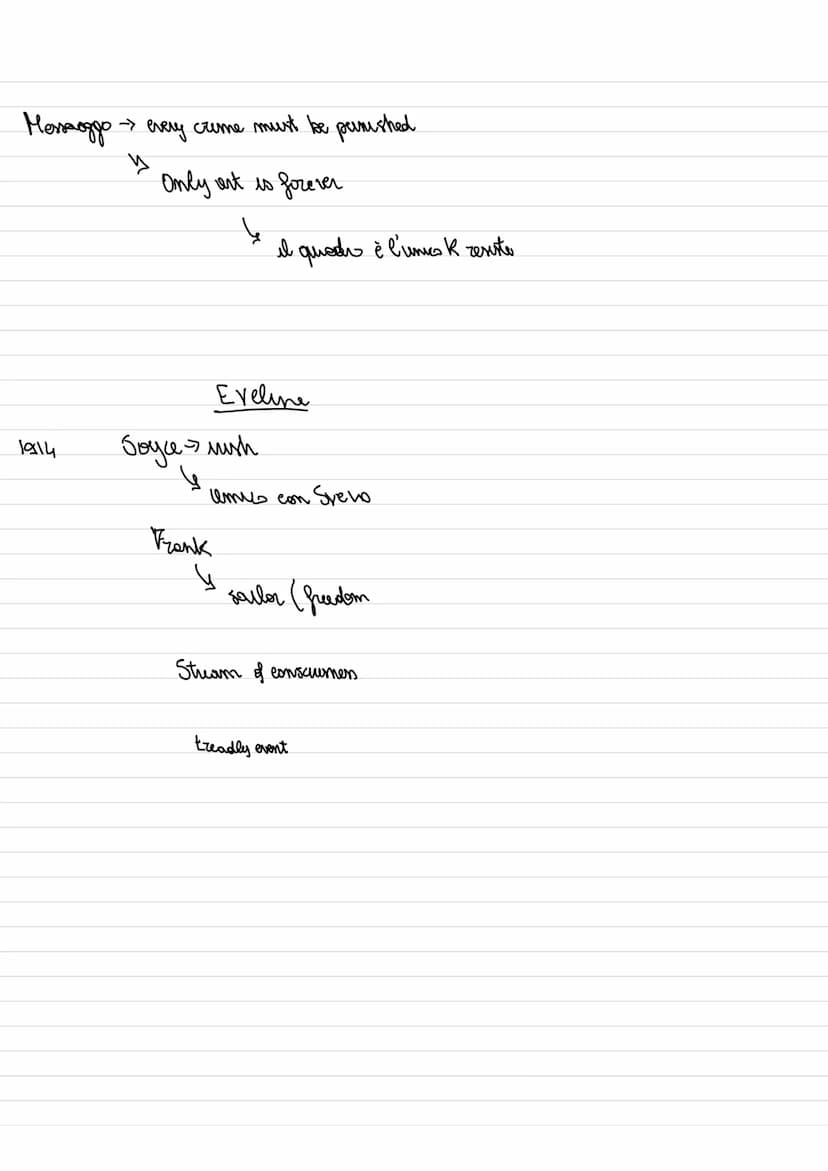 Messaggo → every crime must be punished
↳ Only art is forever
↳ il quadro è l'unico K resiste
Eveline
1914 Joyce → irish
↳ amico con Svevo
Frank
↳ sailor (freedom
Stream of consciusness
event